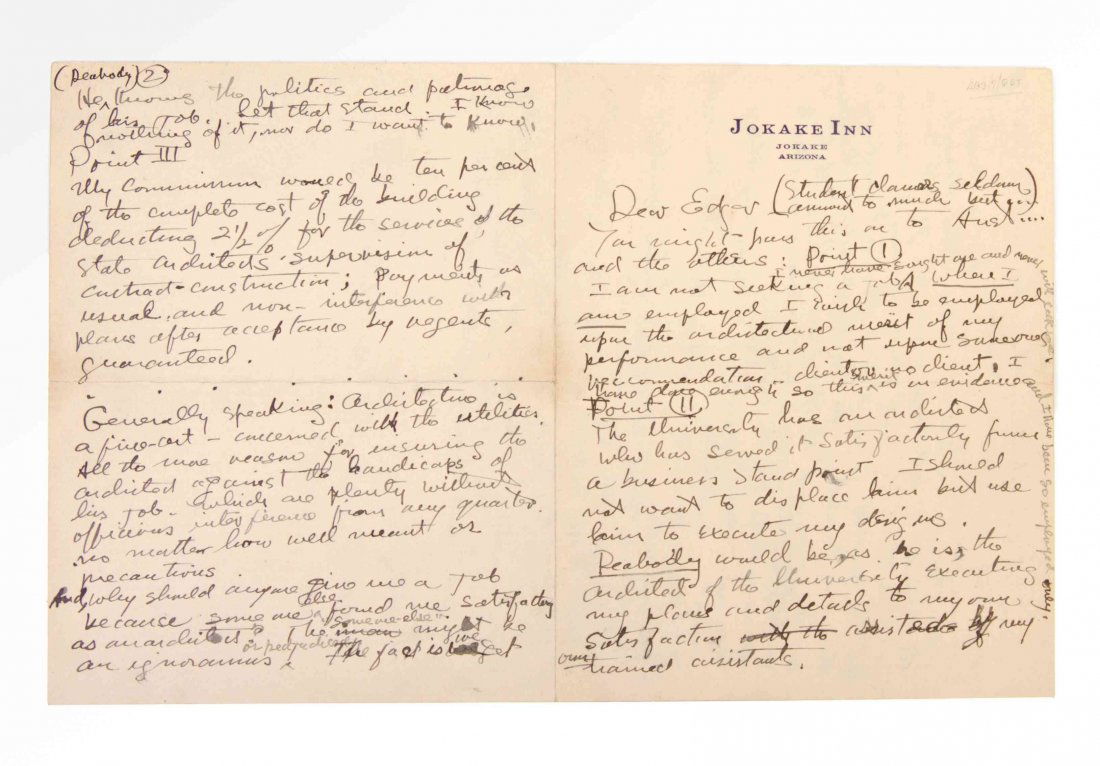 JOKAKE INN
JOKAKE
ARIZONA
Dear Edgar (Student clamor seldom
amounts to much but
You might pass this on to
and the others: Point I
I never have sought one and never will seek one.
I am not seeking a job, (where I
am employed I wish to be employed
upon the architectural merit of my
performance and not upon someones
recommendation – client or no client. I
have done enough so this merit is in evidence
and I have been so employed only.
Point II
The University has an architect
who has served it satisfactorily from
a business stand point I should
not want to displace him but use
him to execute my designs.
Peabody would be, as he is, the
architect of the University executing
my plans and details to my own
satisfaction with the assistants of my
own trained assistants.
(Peabody) 2
He, knowing the politics and patronage
of his job. Let that stand. I know
nothing of it, nor do I want to know.
Point III
My Commission would be ten per cent
of the complete cost of the building
deducting 2½% for the services of the
State architects supervision of
contract-construction; payments as
usual and non-interference with
plans after acceptance by regents,
guaranteed.
Generally speaking: Architecture is
a fine-art – concerned with the utilities.
All the more reason for insuring the
architect against the handicaps of
his job – which are plenty without
officious interference from any quarter
no matter how well meant or
precautious
And, why should anyone give me a job
because someone else found me satisfactory
as an architect? The man someone else might be
an ignoramus or prejudiced. The fact is we get